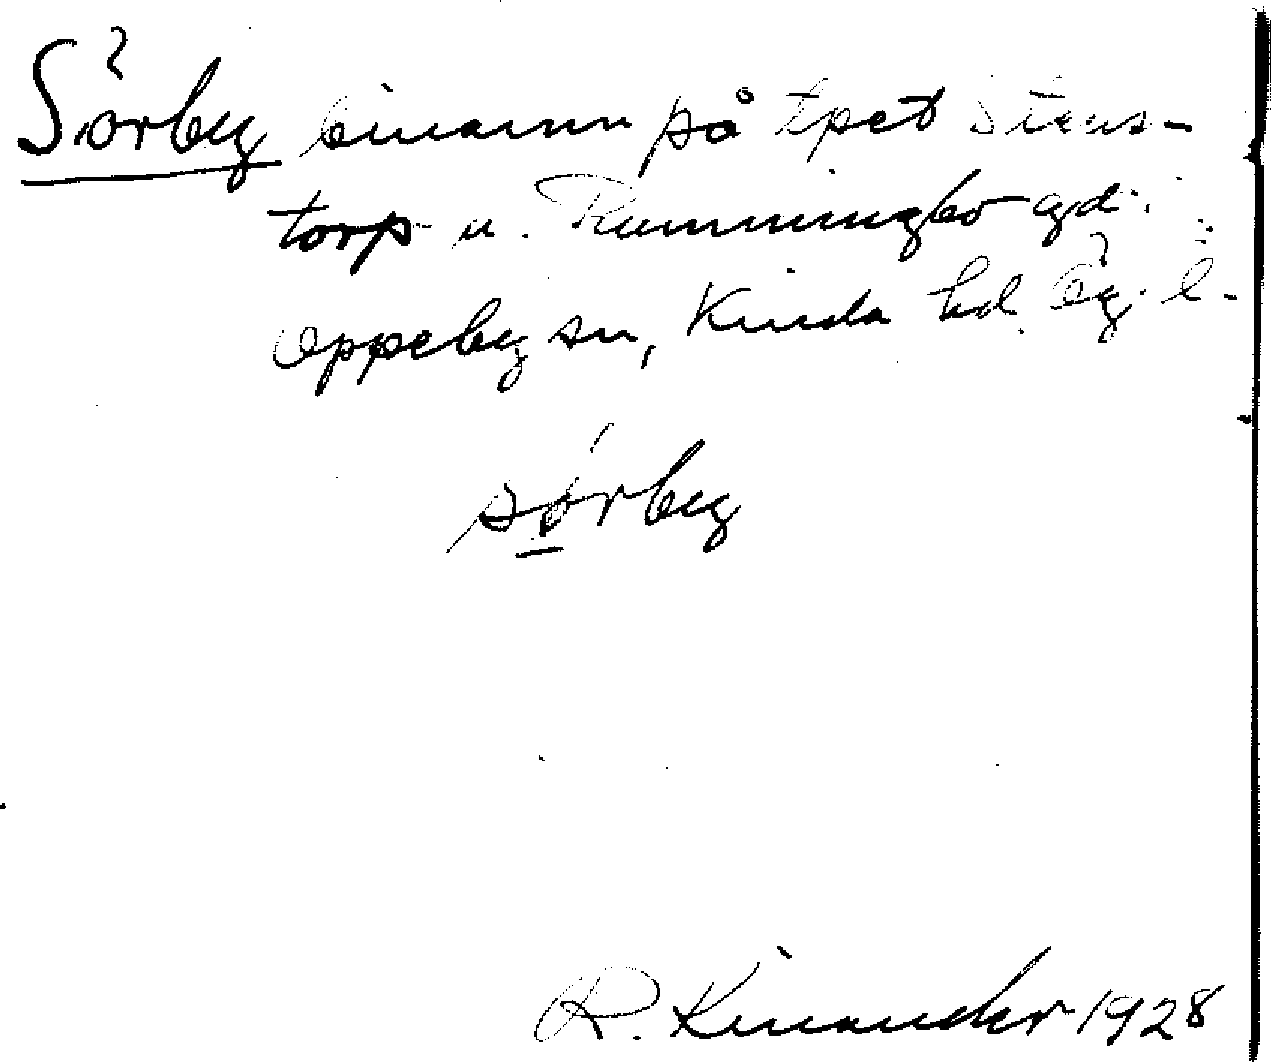 Sörby binamn på tpet Stens-
torp u. Rumningbo gd i
Oppeby sn, Kinda hd Ög. l.
sörby
R. Kinander 1928